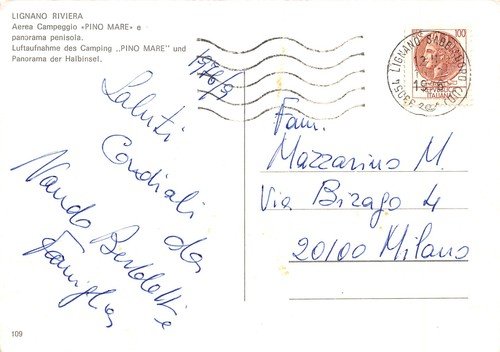 LIGNANO RIVIERA
Aerea Campeggio «PINO MARE» e
panorama penisola.
Luftaufnahme des Camping „PINO MARE" und
Panorama der Halbinsel.
Saluti
Cordiali da
Nando
e
Famiglia
Fam.
Mazzarino M.
Via Birago 4
20100 Milano
33054 LIGNANO SABBIADORO (UD)
100
ITALIANE
109